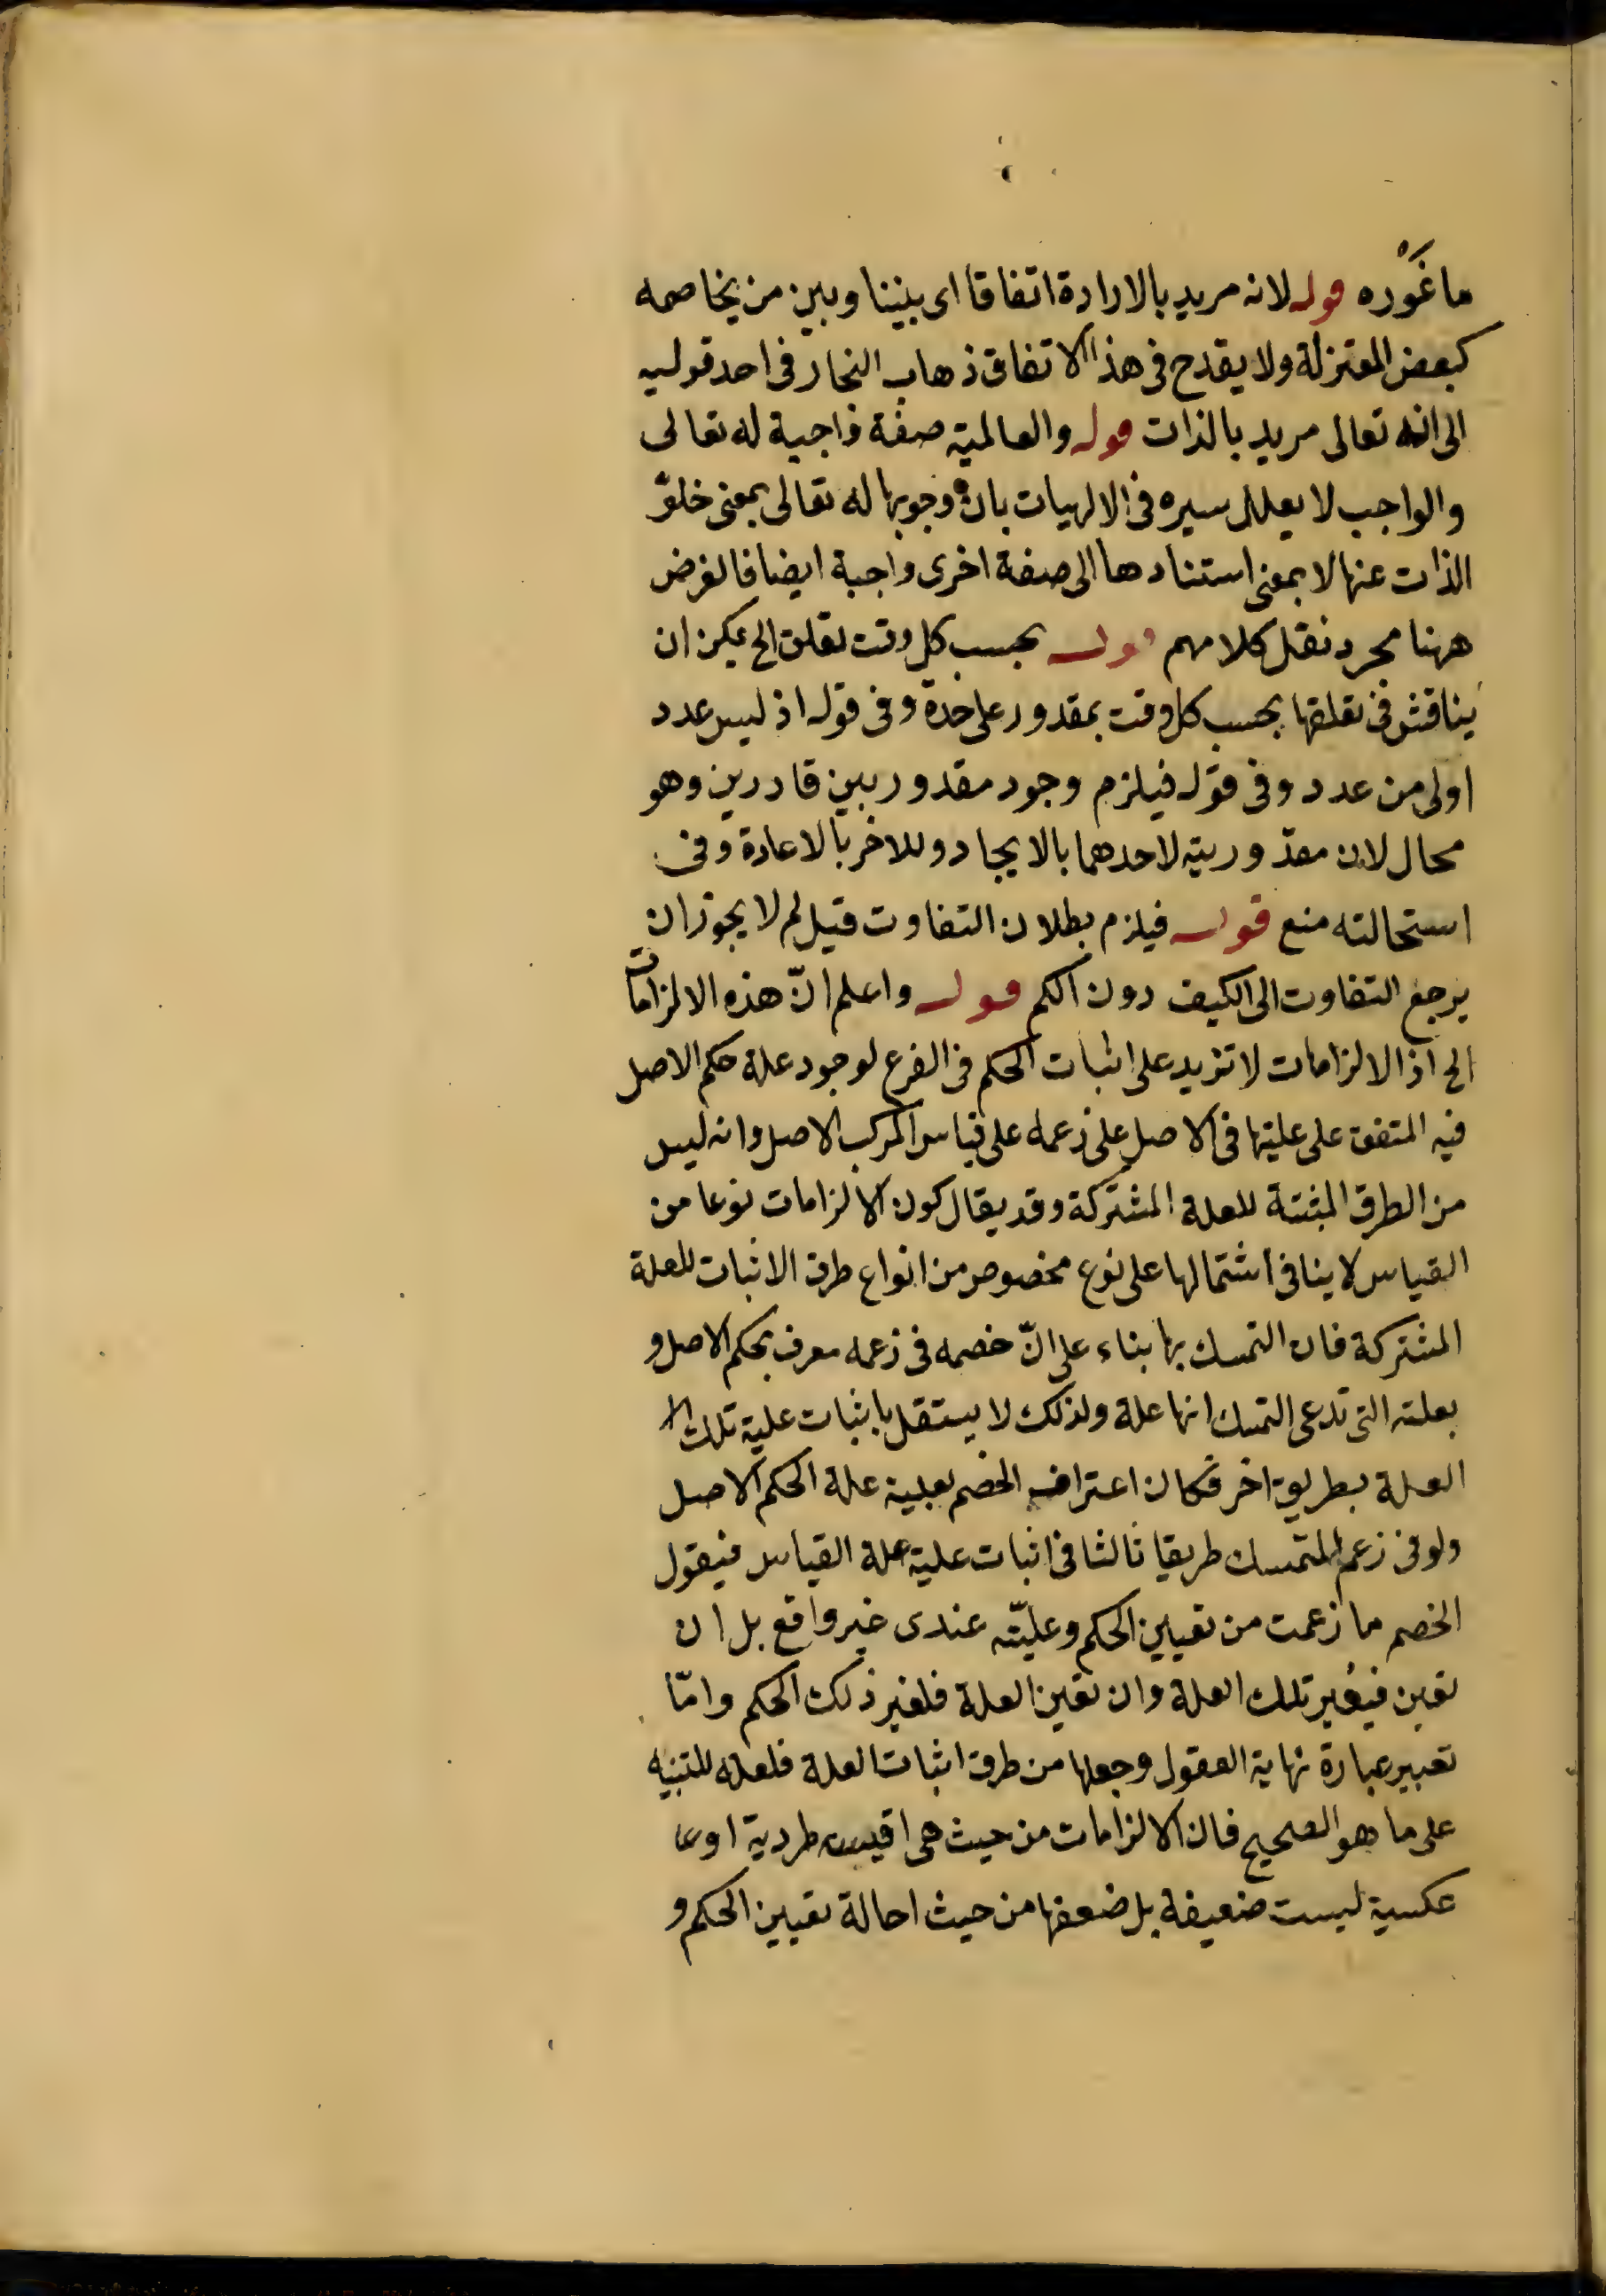 ما غَوْره قوله لانه مريد بالارادة اتفاقا اى بيننا وبين من يخاصمه
كبعض المعتزلة ولا يقدح فى هذا الاتفاق ذهاب النجار فى احد قوليه
الى انه تعالى مريد بالذات قوله والعالمية صفة واجبة له تعالى
والواجب لا يعلل سيره فى الالهيات بان وجوبها له تعالى بمعنى خلوّ
الذات عنها لا بمعنى استنادها الى صفة اخرى واجبة ايضا فالغرض
ههنا مجرد نقل كلامهم قوله بحسب كل وقت تعلق الخ يمكن ان
يناقش فى تعلقها بحسب كل وقت بمقدور على حدة وفى قوله اذ ليس عدد
اولى من عدد وفى قوله فيلزم وجود مقدور بين قادرين وهو
محال لان مقدّوريته لاحدهما بالايجاد وللاخر بالاعادة وفى
استحالته منع قوله فيلزم بطلان التفاوت قيل لم لا يجوز ان
يرجع التفاوت الى الكيف دون الكم قوله واعلم انّ هذه الالزامات
الخ اذ الالزامات لا تزيد على اثبات الحكم فى الفرع لوجود علة حكم الاصل
فيه المتفق على عليتها فى الاصل على زعمه على قياس المركب الاصل وانه ليس
من الطرق المثبتة للعلة المشتركة وقد يقال كون الالزامات نوعا من
القياس لا ينافى اشتمالها على نوع مخصوص من انواع طرق الاثبات للعلة
المشتركة فان التمسك بها بناء على انّ خصمه فى زعمه معرف بحكم الاصل و
بعلته التى تدعى التمسك انها علة ولذلك لا يستقل باثبات علية تلك
العلة بطريق اخر فكان اعتراف الخصم بعلية علة الحكم الاصل
ولو فى زعم المتمسك طريقا ثالثا فى اثبات علية علة القياس فيقول
الخصم ما زعمت من تعيين الحكم وعليّته عندى غير واقع بل ان
تعين فيغير تلك العلة وان تعين العلة فلغير ذلك الحكم وامّا
تعبير عبارة نهاية العقول وجعلها من طرق اثبات العلة فلعله للتنبيه
على ما هو الصحيح فان الالزامات من حيث هى اقيسه طردية او
عكسية ليست ضعيفة بل ضعفها من حيث احالة تعيين الحكم و